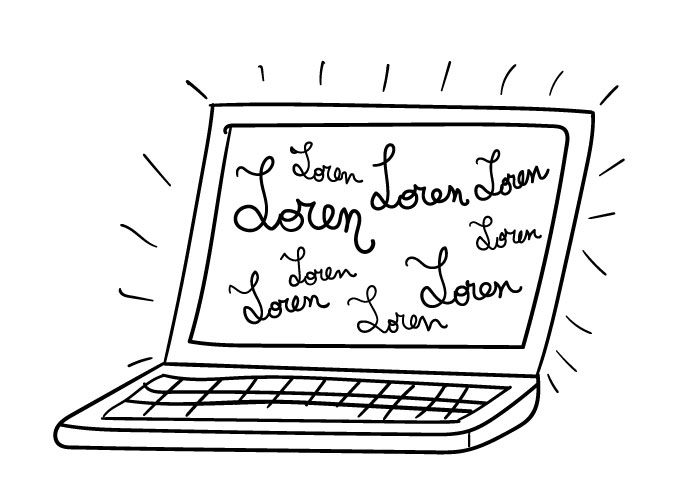 Loren
Loren
Loren
Loren
Loren
Loren
Loren
Loren
Loren